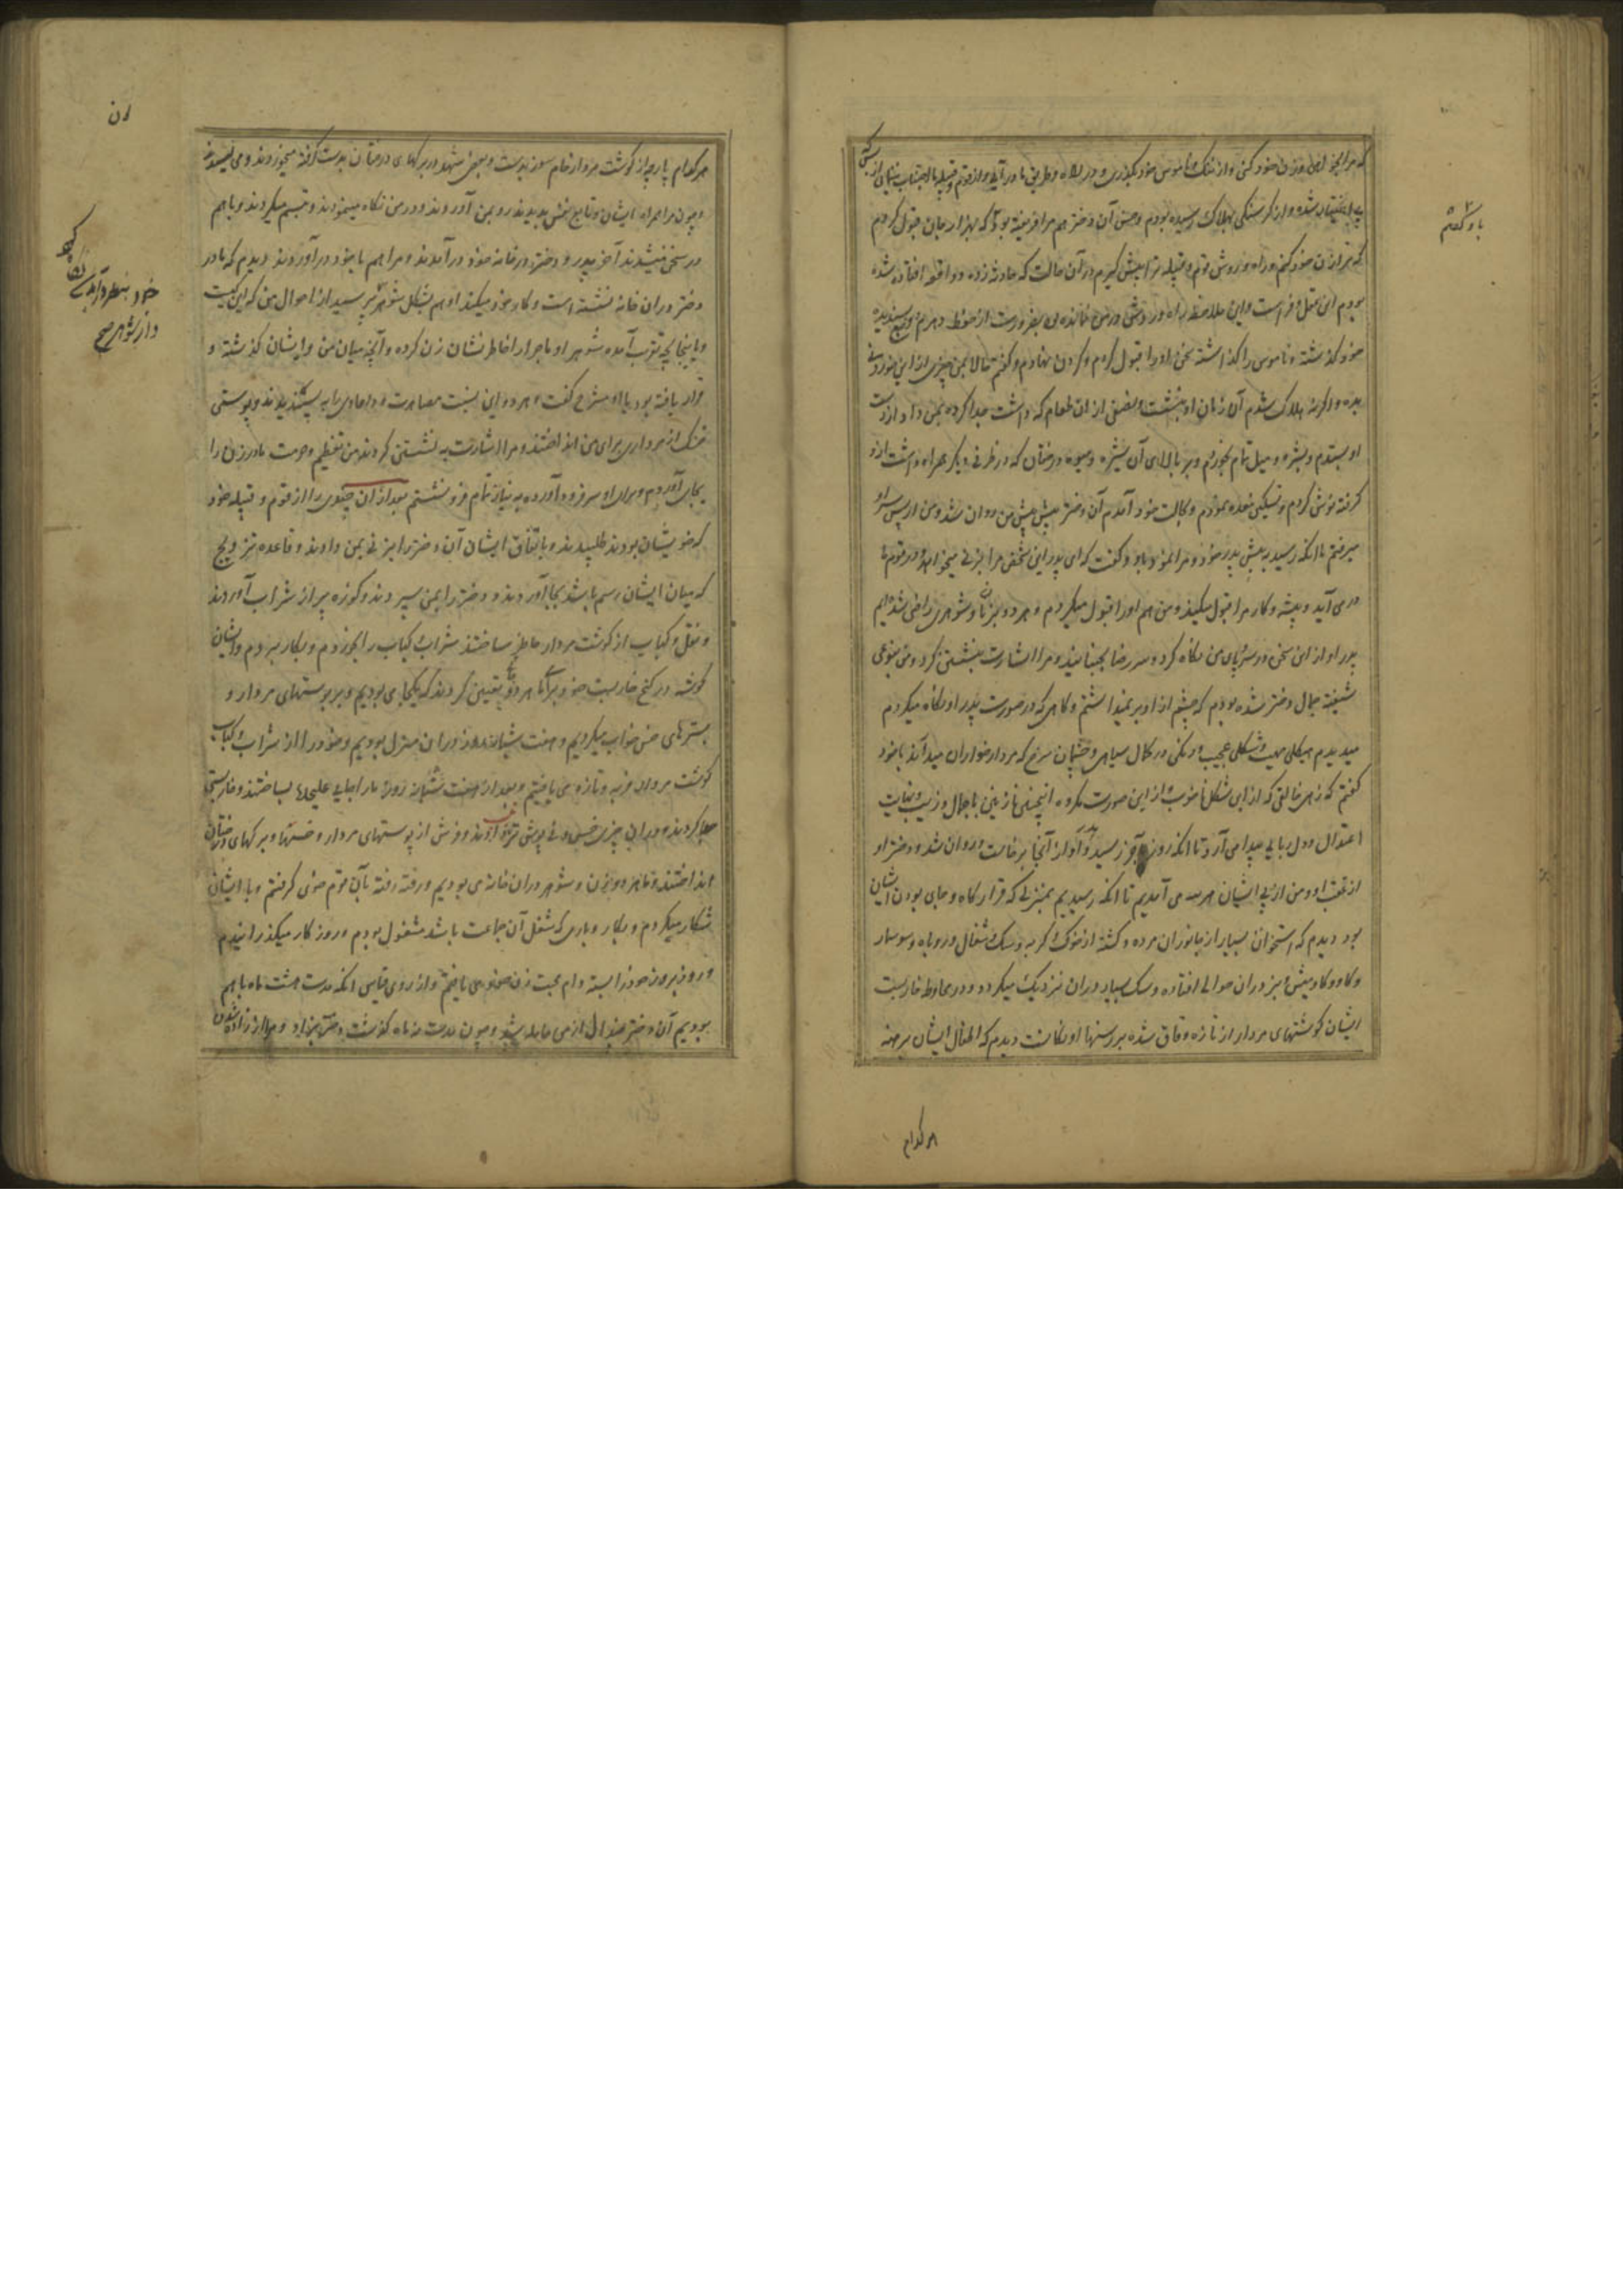 که مرا بخواهی و زن خود کنی و از ننگ و ناموس خود بگذری و در راه و طریق ما درآئی و از قوم و قبیله ما اجتناب ننمائی از بسکه
بی اختیار شده و از گرسنگی بهلاکت رسیده بودم و حسن آن دختر هم مرا فریفته بود که بهزار جان قبول کردم
که ترا زن خود کنم و راه و روش قوم و قبیله ترا پیش گیرم در آن حالت که حادثه زده و واقعه افتاده شده
بودم این عقل و فراست و این ملاحظه راه و روش در من نمانده بود بضرورت از
خود گذشته و ناموس را گذاشته سخن او را قبول کردم و گردن نهادم و گفتم حالا بمن چیزی از این خوردنی
بده و اگرنه هلاک شدم آن زمان او بنشست و بعضی از ان طعام که داشت جدا کرده بمن داد از دست
او بستدم و بشره و میل تمام بخوردم و بر بالای آن شیره و میوه درختان که در ظرفی دیگر همراه داشت از او
گرفته نوش کردم و تسکین معده نمودم و بحالت خود آمدم آن دختر پیش پیش من روان شد و من از پس سر او
میرفتم تا آنکه رسید به پیش پدر خود و مرا نمود باو و گفت که ای پدر این شخص مرا بزنی میخواهد و در قوم ما
در می آید و پیشه و کار مرا قبول میکند و من هم او را قبول میکردم و هر دو بزن و شوهری راضی شده ایم
پدر او از این سخن در سراپای من نگاه کرد و سر رضا بجنبانید و مرا اشارت بنشستن کرد و من بنوعی
شیفته جمال دختر شده بودم که چشم از او بر نمیداشتم و گاهی که در صورت پدر او نگاه میکردم
میدیدم هیکلی مهیب و شکلی عجیب و رنگی در کمال سیاهی و چشمان سرخ که مردار خواران میدانند با خود
گفتم که زهی خالقی که از این شکل ناخوب و از این صورت مکروه اینچنین نازنینی با جمال و زیب و بغایت
اعتدال و دلربایی پیدا می آرد تا آنکه روز آخر رسید و او از آنجا برخاست و روان شد و دختر او
از عقب او و من از پی ایشان هر سه می آمدیم تا آنکه رسیدیم بمنزلی که قرارگاه و جای بودن ایشان
بود دیدم که استخوان بسیار از جانوران مرده و کشته از خوک و گربه و سگ و شغال و روباه و سوسمار
و گاو و گاومیش و بز در ان حوالی افتاده و سگ بسیار در ان نزدیک میگردد و در محاوط خاربست
ایشان گوشتهای مردار از تازه و قاق شده بر رسنها دیدم که اطفال ایشان برهنه
هر کدام
باو گفتم
هر کدام پارچه از گوشت مردار خام بدست و بعضی شهد در برگهای درختان بدست گرفته میخوردند و می لیسیدند
و چون مرا همراه ایشان بدیدند رو بمن آوردند و در من نگاه مینمودند و تبسم میکردند و باهم
در سخن میشدند آخر پدر و دختر در خانه خود درآمدند و مرا هم با خود درآوردند دیدم که مادر
دختر در ان خانه نشسته است و کار خود میکند او هم بشکل شوهر پرسید از احوال من که این کیست
و اینجا بچه تقریب آمده شوهر او ماجرا را خاطر نشان زن کرده و آنچه میان من و ایشان گذشته و
قرار یافته بود با او مشرح گفت هر دو این نسبت مصاهرت و دامادی را به پسندیدند و پوستی
خشک از مرداری برای من انداختند و مرا اشارت به نشستن کردند من تعظیم و حرمت مادر زن را
بجای آوردم و برای او سر فرود آورده به نیاز تمام فرو نشستم بعد از ان جمعی را از قوم و قبیله خود
که خویشان بودند طلبیدند و باتفاق ایشان آن دختر را بزنی بمن دادند و قاعده تزویج
که میان ایشان رسم باشد بجا آوردند و دختر را بمن سپردند و کوزه پر از شراب آوردند
و نقل و کباب از گوشت مردار حاضر ساختند شراب و کباب را بخوردم و بکار بردم و ایشان
گوشه در کنج خاربست خود برای ما هر دو تعیین کردند که یکجا می بودیم و بر پوستهای مردار و
بسترهای خس خواب میکردیم و هفت شبانه روز در ان منزل بودیم و خود را از شراب و کباب
گوشت مردار فربه و تازه می یافتیم و بعد از هفت شبانه روز ما را جایی علیحده بساختند و خاربستی
جدا کردند و در ان چیزی خس و نی پوش آوردند و فرش از پوستهای مردار و خسها و برگهای درختان
انداختند و ما هر دو بزن و شوهر در ان خانه می بودیم و رفته رفته بآن قوم خوی گرفتم و با ایشان
شکار میکردم و بکار و باری که شغل آن جماعت باشد مشغول بودم و روزگار میگذرانیدم
و روز بروز خود را بسته دام محبت زن خود می یافتم و از روی قیاس آنکه مدت هشت ماه باهم
بودیم آن دختر از من حامله شد و چون مدت نه ماه گذشت دختر بزاد و مرا از زادن